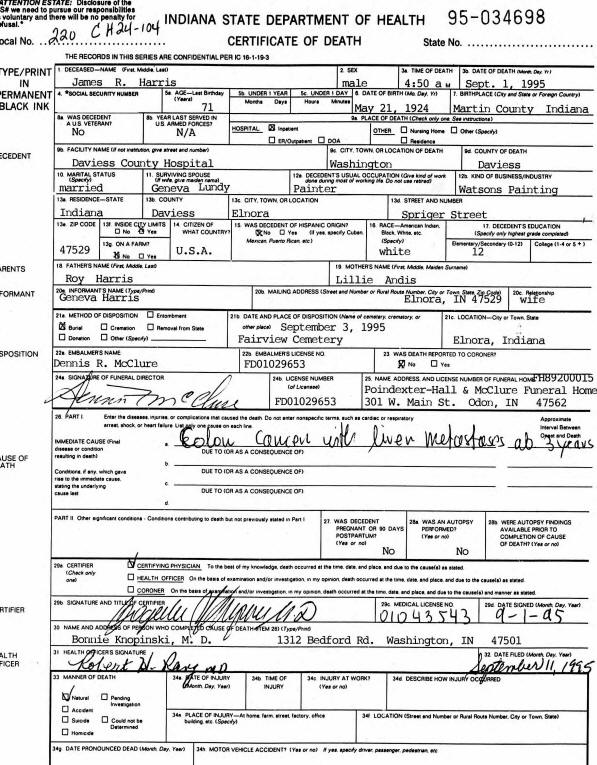 ATTENTION ESTATE: Disclosure of the
S# we need to pursue our responsibilities
voluntary and there will be no penalty for
refusal.*
INDIANA STATE DEPARTMENT OF HEALTH 95-034698
Local No. 220 CH24-104 CERTIFICATE OF DEATH State No.
THE RECORDS IN THIS SERIES ARE CONFIDENTIAL PER IC 16-1-19-3
TYPE/PRINT
IN
PERMANENT
BLACK INK
1. DECEASED—NAME (First, Middle, Last) 2. SEX 3a. TIME OF DEATH 3b. DATE OF DEATH (Month, Day, Yr.)
James R. Harris male 4:50 a M Sept. 1, 1995
4. *SOCIAL SECURITY NUMBER 5a. AGE—Last Birthday (Years) 5b. UNDER 1 YEAR Months Days 5c. UNDER 1 DAY Hours Minutes 6. DATE OF BIRTH (Mo. Day, Yr.) 7. BIRTHPLACE (City and State or Foreign Country)
71 May 21, 1924 Martin County Indiana
8a. WAS DECEDENT A U.S. VETERAN? 8b. YEAR LAST SERVED IN U.S. ARMED FORCES? 9a. PLACE OF DEATH (Check only one. See instructions)
No N/A HOSPITAL: ☒ Inpatient ☐ ER/Outpatient ☐ DOA OTHER: ☐ Nursing Home ☐ Other (Specify) ☐ Residence
DECEDENT
9b. FACILITY NAME (If not institution, give street and number) 9c. CITY, TOWN, OR LOCATION OF DEATH 9d. COUNTY OF DEATH
Daviess County Hospital Washington Daviess
10. MARITAL STATUS (Specify) 11. SURVIVING SPOUSE (If wife, give maiden name) 12a. DECEDENT'S USUAL OCCUPATION (Give kind of work done during most of working life. Do not use retired) 12b. KIND OF BUSINESS/INDUSTRY
married Geneva Lundy Painter Watsons Painting
13a. RESIDENCE—STATE 13b. COUNTY 13c. CITY, TOWN, OR LOCATION 13d. STREET AND NUMBER
Indiana Daviess Elnora Spriger Street
13e. ZIP CODE 13f. INSIDE CITY LIMITS ☐ No ☒ Yes 14. CITIZEN OF WHAT COUNTRY? 15. WAS DECEDENT OF HISPANIC ORIGIN? ☒ No ☐ Yes (If yes, specify Cuban, Mexican, Puerto Rican, etc.) 16. RACE—American Indian, Black, White, etc. (Specify) 17. DECEDENT'S EDUCATION (Specify only highest grade completed)
13g. ON A FARM? ☒ No ☐ Yes Elementary/Secondary (0-12) College (1-4 or 5+)
47529 U.S.A. white 12
PARENTS
18. FATHER'S NAME (First, Middle, Last) 19. MOTHER'S NAME (First, Middle, Maiden Surname)
Roy Harris Lillie Andis
INFORMANT
20a. INFORMANT'S NAME (Type/Print) 20b. MAILING ADDRESS (Street and Number or Rural Route Number, City or Town, State, Zip Code) 20c. Relationship
Geneva Harris Elnora, IN 47529 wife
21a. METHOD OF DISPOSITION ☐ Entombment 21b. DATE AND PLACE OF DISPOSITION (Name of cemetery, crematory, or other place) 21c. LOCATION—City or Town, State
☒ Burial ☐ Cremation ☐ Removal from State September 3, 1995
☐ Donation ☐ Other (Specify) Fairview Cemetery Elnora, Indiana
DISPOSITION
22a. EMBALMER'S NAME 22b. EMBALMER'S LICENSE NO. 23. WAS DEATH REPORTED TO CORONER?
Dennis R. McClure FD01029653 ☒ No ☐ Yes
24a. SIGNATURE OF FUNERAL DIRECTOR 24b. LICENSE NUMBER (of Licensee) 25. NAME, ADDRESS, AND LICENSE NUMBER OF FUNERAL HOME FH89200015
Dennis McClure FD01029653 Poindexter-Hall & McClure Funeral Home
301 W. Main St. Odon, IN 47562
26. PART I Enter the diseases, injuries, or complications that caused the death. Do not enter nonspecific terms, such as cardiac or respiratory arrest, shock, or heart failure. List only one cause on each line. Approximate Interval Between Onset and Death
IMMEDIATE CAUSE (Final disease or condition resulting in death) a. Colon Cancer with liver metastases ab 3 years
DUE TO (OR AS A CONSEQUENCE OF):
b.
Conditions, if any, which gave rise to the immediate cause, stating the underlying cause last
DUE TO (OR AS A CONSEQUENCE OF):
c.
DUE TO (OR AS A CONSEQUENCE OF):
d.
CAUSE OF
DEATH
PART II Other significant conditions - Conditions contributing to death but not previously stated in Part I 27. WAS DECEDENT PREGNANT OR 90 DAYS POSTPARTUM? (Yes or no) No 28a. WAS AN AUTOPSY PERFORMED? (Yes or no) No 28b. WERE AUTOPSY FINDINGS AVAILABLE PRIOR TO COMPLETION OF CAUSE OF DEATH? (Yes or no)
29a. CERTIFIER (Check only one) ☒ CERTIFYING PHYSICIAN To the best of my knowledge, death occurred at the time, date, and place, and due to the cause(s) as stated.
☐ HEALTH OFFICER On the basis of examination and/or investigation, in my opinion, death occurred at the time, date, and place, and due to the cause(s) as stated.
☐ CORONER On the basis of examination and/or investigation, in my opinion, death occurred at the time, date, and place, and due to the cause(s) and manner as stated.
CERTIFIER
29b. SIGNATURE AND TITLE OF CERTIFIER 29c. MEDICAL LICENSE NO. 29d. DATE SIGNED (Month, Day, Year)
01043543 9-1-95
30. NAME AND ADDRESS OF PERSON WHO COMPLETED CAUSE OF DEATH (ITEM 26) (Type/Print)
Bonnie Knopinski, M. D. 1312 Bedford Rd. Washington, IN 47501
HEALTH
OFFICER
31. HEALTH OFFICER'S SIGNATURE 32. DATE FILED (Month, Day, Year)
September 11, 1995
33. MANNER OF DEATH 34a. DATE OF INJURY (Month, Day, Year) 34b. TIME OF INJURY 34c. INJURY AT WORK? (Yes or no) 34d. DESCRIBE HOW INJURY OCCURRED
☒ Natural ☐ Pending Investigation
☐ Accident
☐ Suicide ☐ Could not be Determined
☐ Homicide
34e. PLACE OF INJURY—At home, farm, street, factory, office building, etc. (Specify) 34f. LOCATION (Street and Number or Rural Route Number, City or Town, State)
34g. DATE PRONOUNCED DEAD (Month, Day, Year) 34h. MOTOR VEHICLE ACCIDENT? (Yes or no) If yes, specify driver, passenger, pedestrian, etc.